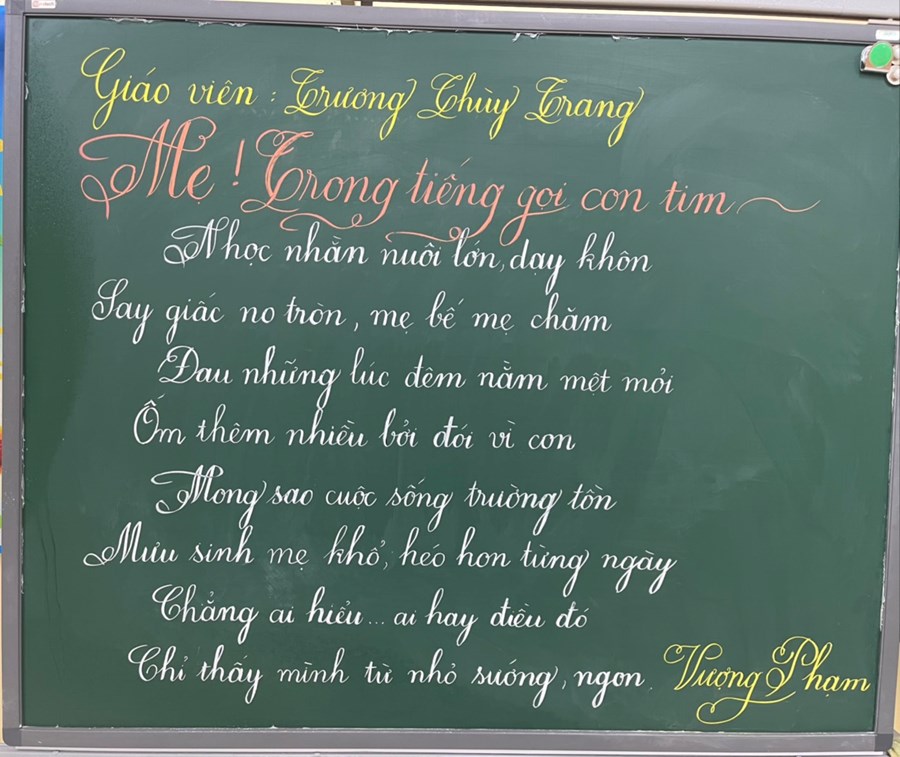 Giáo viên : Trương Thùy Trang
Mẹ ! Trong tiếng gọi con tim
Nhọc nhằn nuôi lớn, dạy khôn
Say giấc no tròn, mẹ bế mẹ chăm
Đau những lúc đêm nằm mệt mỏi
Ốm thêm nhiều bởi đói vì con
Mong sao cuộc sống trường tồn
Mưu sinh mẹ khổ, héo hon từng ngày
Chẳng ai hiểu... ai hay điều đó
Chỉ thấy mình từ nhỏ sướng, ngon.
Vượng Phạm